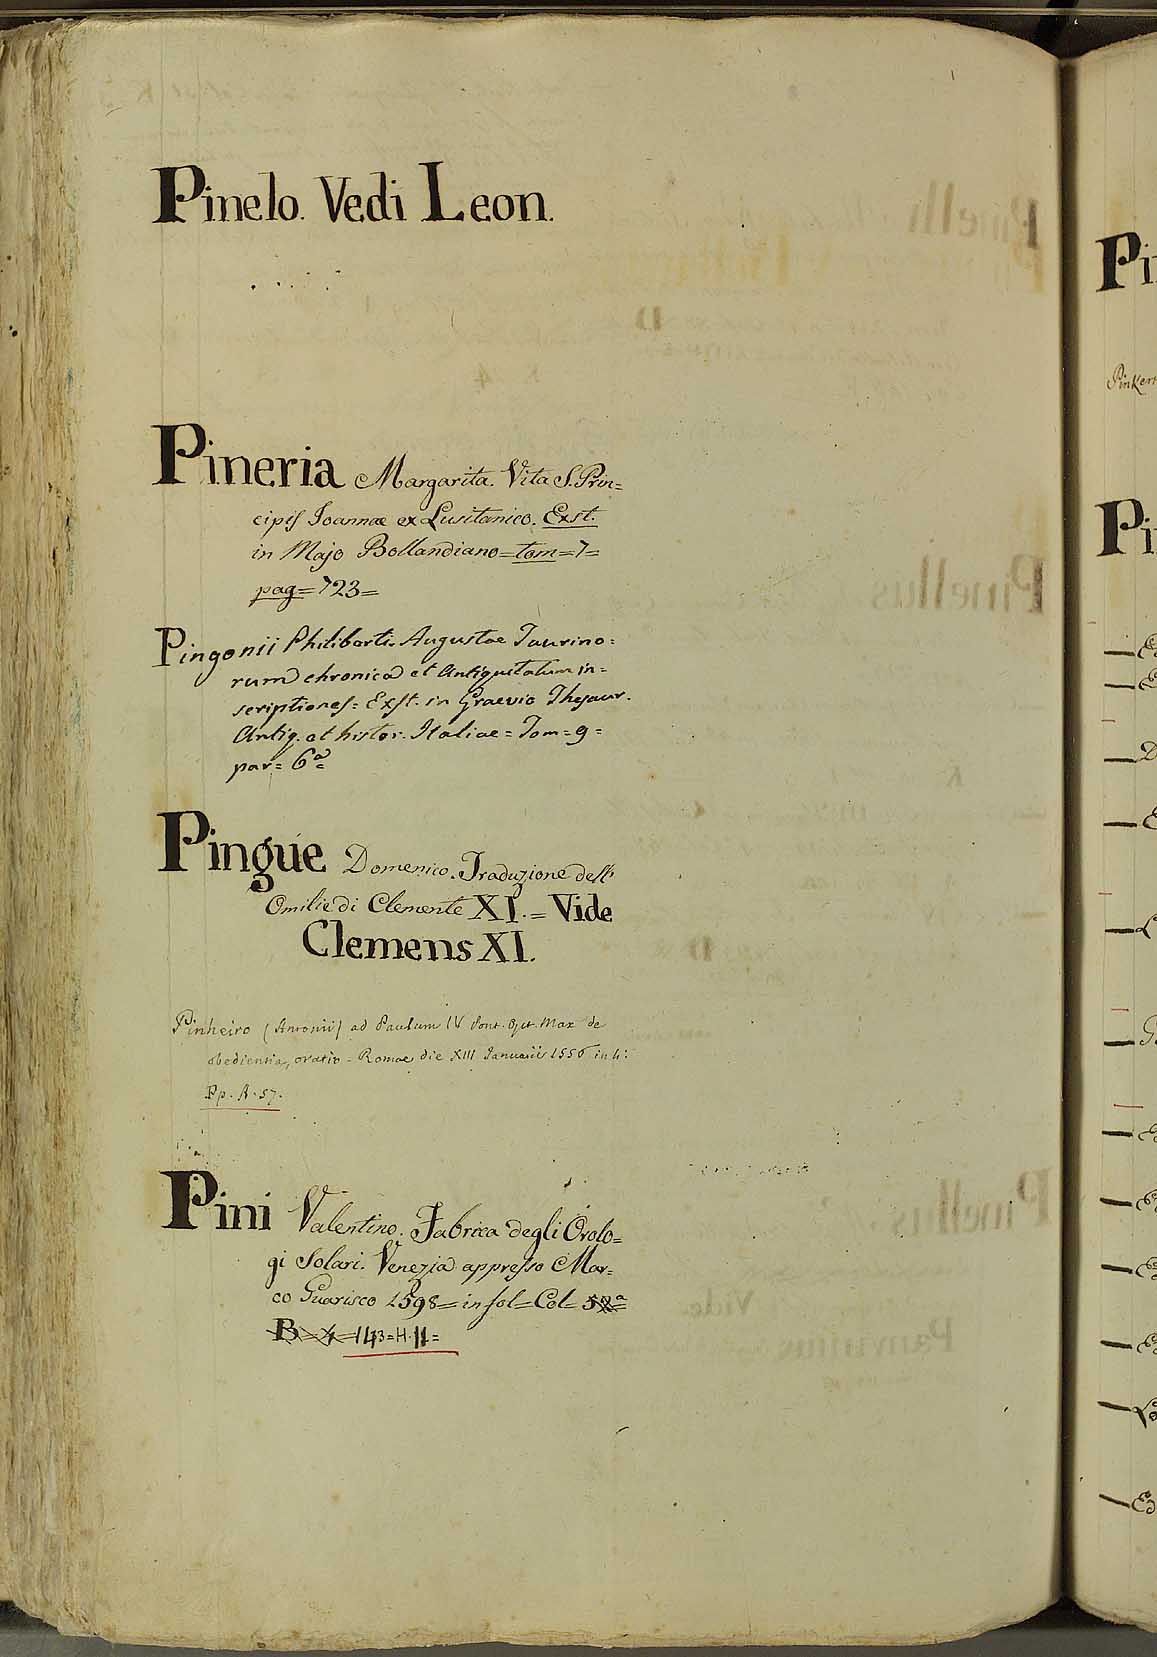 Pinelo. Vedi Leon.
Pineria Margarita. Vita S. Prin=
cipis Joannae ex Lusitanico. Exst.
in Majo Bollandiano=tom=7=
pag=723=
Pingonii Philiberti. Augustae Taurino=
rum chronica et Antiquitatum in=
scriptiones= Exst. in Graevio Thesaur.
Antiq. et histor. Italiae= Tom=9=
par= 6ª=
Pingue Domenico. Traduzione dell'
Omilie di Clemente XI.= Vide
Clemens XI.
Pinheiro (Antonii) ad Paulum IV Pont. Opt. Max de
obedientia, oratio - Romae, die XIII Januarii 1556 in 4:
Pp. A. 57.
Pini Valentino. Fabrica degli Orolo=
gi Solari. Venezia appresso Mar=
co Guarisco 1598=in fol=Col=
B=4=143=H.11=
Pi
Pinker
Pi